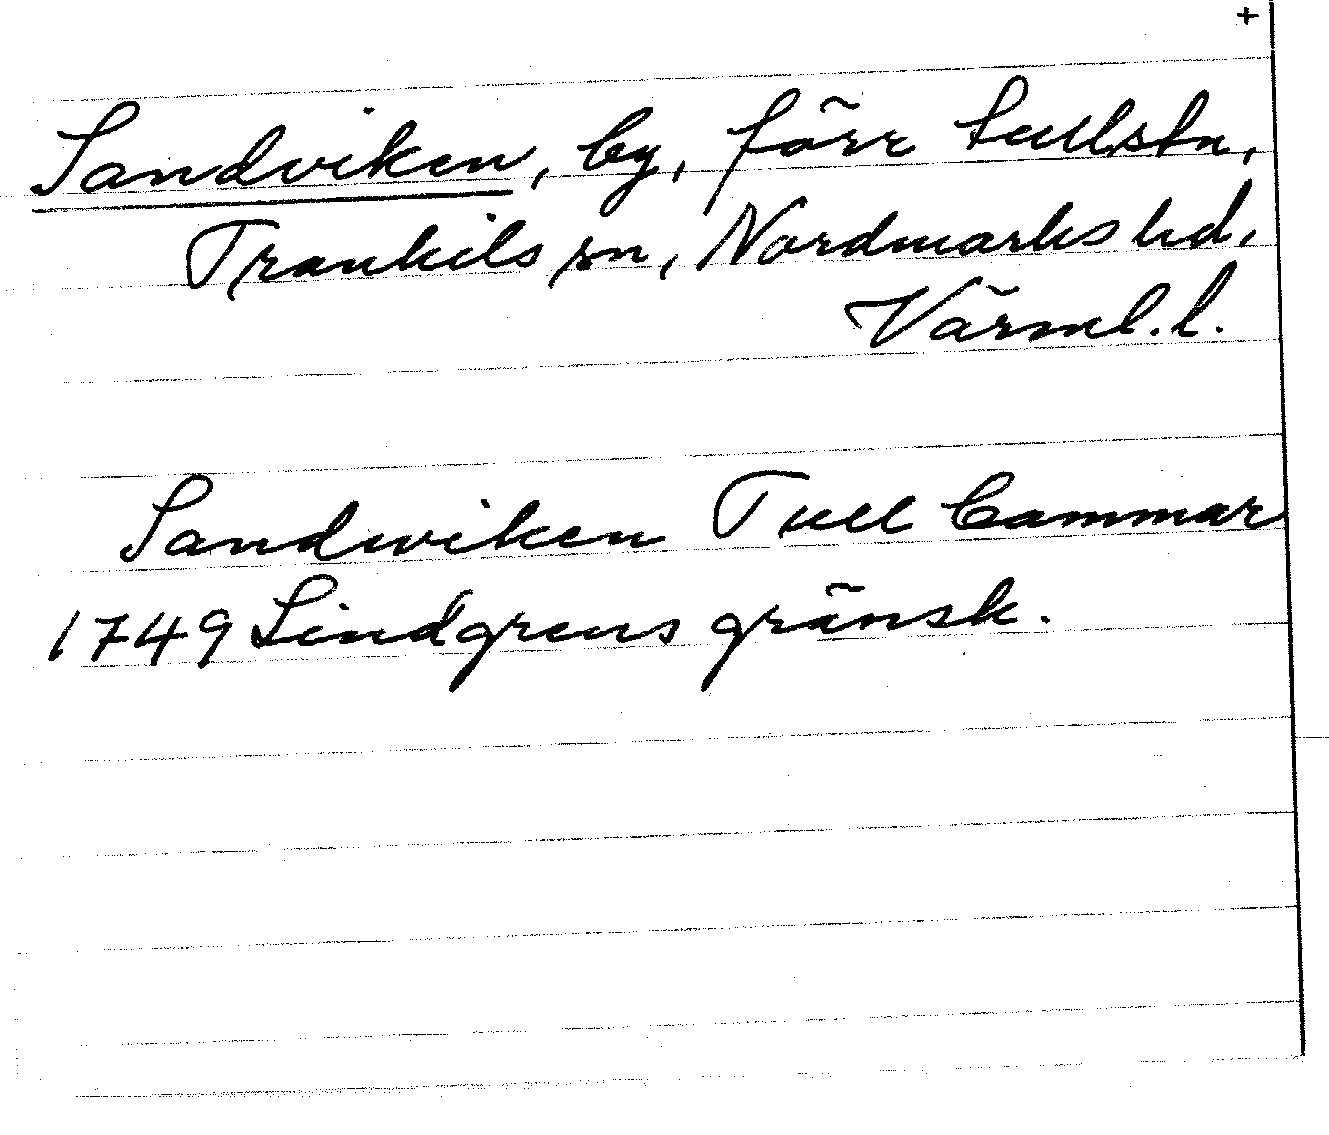 +
Sandviken, by, förr tullstn,
Trankils sn, Nordmarks hd,
Värml. l.
Sandwiken Tull Cammar
1749 Lindgrens gränsk.